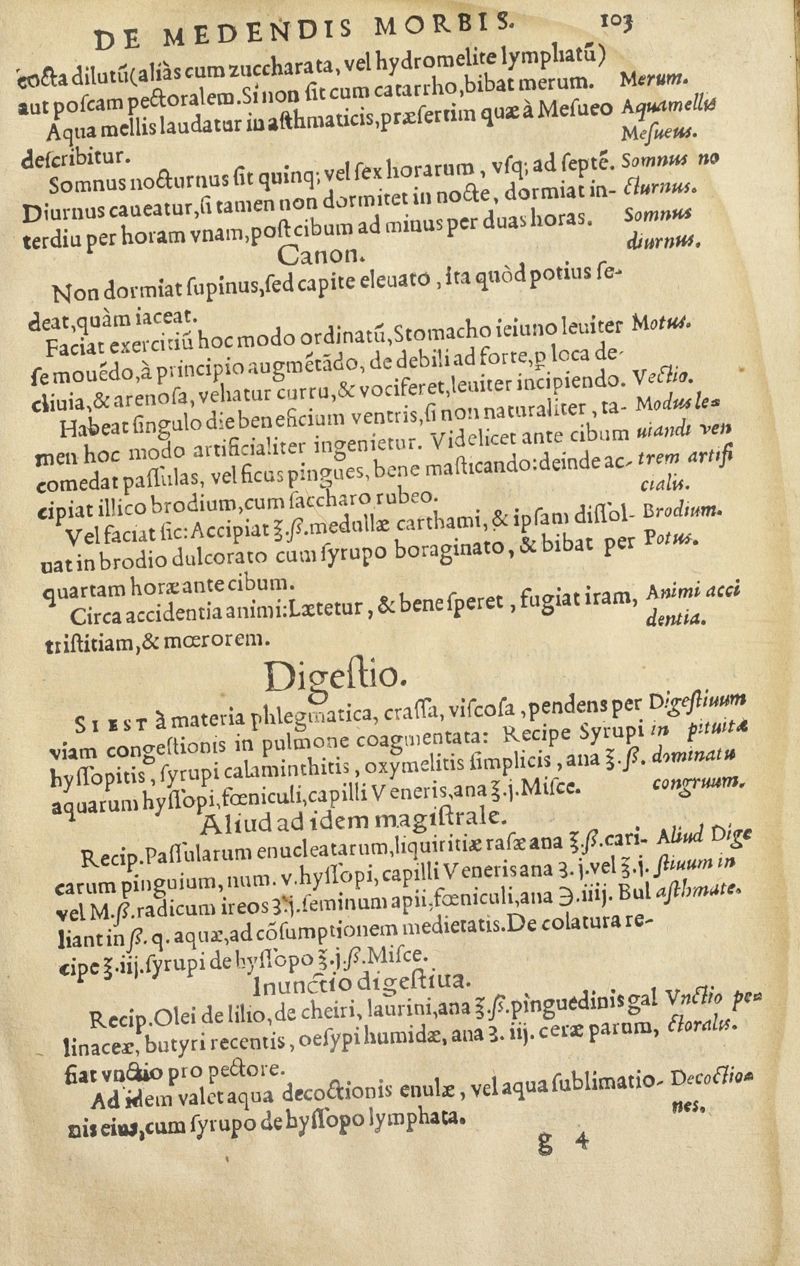 DE MEDENDIS MORBIS. 103
cocta dilutū (aliàs cum zuccharata, vel hydromelite lymphatū)
aut poſcam pectoralem. Si non ſit cum catarrho, bibat merum. Merum.
Aqua mellis laudatur in aſthmaticis, præſertim quæ à Meſueo Aqua mellis
deſcribitur. Meſueus.
Somnus nocturnus ſit quinq; vel ſex horarum, vſq; ad ſeptē. Somnus no
Diurnus caueatur, ſi tamen non dormitet in nocte, dormiat in- cturnus.
terdiu per horam vnam, poſt cibum ad minus per duas horas. Somnus
Canon. diurnus.
Non dormiat ſupinus, ſed capite eleuato, ita quòd potius ſe-
deat, quàm iaceat.
Faciat exercitiū hoc modo ordinatū, Stomacho ieiuno leuiter Motus.
ſe mouēdo, à principio augmētādo, de debili ad forte, ꝑ loca de-
cliuia, & arenoſa, vehatur curru, & vociferet, leuiter incipiendo. Vectio.
Habeat ſingulo die beneficium ventris, ſi non naturaliter, ta- Modus le-
men hoc modo artificialiter ingenietur. Videlicet ante cibum uiandi ven
comedat paſſulas, vel ficus pingues, bene maſticando: deinde ac- trem artifi
cipiat illico brodium, cum ſaccharo rubeo. cialis.
Vel faciat ſic: Accipiat ℥.ß. medullæ carthami, & ipſam diſſol- Brodium.
uat in brodio dulcorato cum ſyrupo boraginato, & bibat per Potus.
quartam horæ ante cibum.
Circa accidentia animi: Lætetur, & bene ſperet, fugiat iram, Animi acci
triſtitiam, & mœrorem. dentia.
Digeſtio.
SI EST à materia phlegmatica, craſſa, viſcoſa, pendens per Digeſtiuum
viam congeſtionis in pulmone coagmentata: Recipe Syrupi in pituitæ
hyſſopitis, ſyrupi calaminthitis, oxymelitis ſimplicis, ana ℥.ß. dominatu
aquarum hyſſopi, fœniculi, capilli Veneris, ana ℥.j. Miſce. congruum.
Aliud ad idem magiſtrale.
Recip. Paſſularum enucleatarum, liquiritiæ raſæ ana ℥.ß. cari- Aliud Dige
carum pinguium, num. v. hyſſopi, capilli Veneris ana ʒ.j. vel ℥.j. ſtiuum in
vel M.ß. radicum ireos ʒ.ij. ſeminum apii, fœniculi, ana ℈.iiij. Bul aſthmate.
liant in ß. q. aquæ, ad cōſumptionem medietatis. De colatura re-
cipe ℥.iij. ſyrupi de hyſſopo ℥.j.ß. Miſce.
Inunctio digeſtiua.
Recip. Olei de lilio, de cheiri, laurini, ana ℥.ß. pinguedinis gal Vnctio pe-
linaceæ, butyri recentis, oeſypi humidæ, ana ʒ.iij. ceræ parum, ctoralis.
fiat vnctio pro pectore.
Ad idem valet aqua decoctionis enulæ, vel aqua ſublimatio- Decoctio-
nis eius, cum ſyrupo de hyſſopo lymphata. nes.
g 4